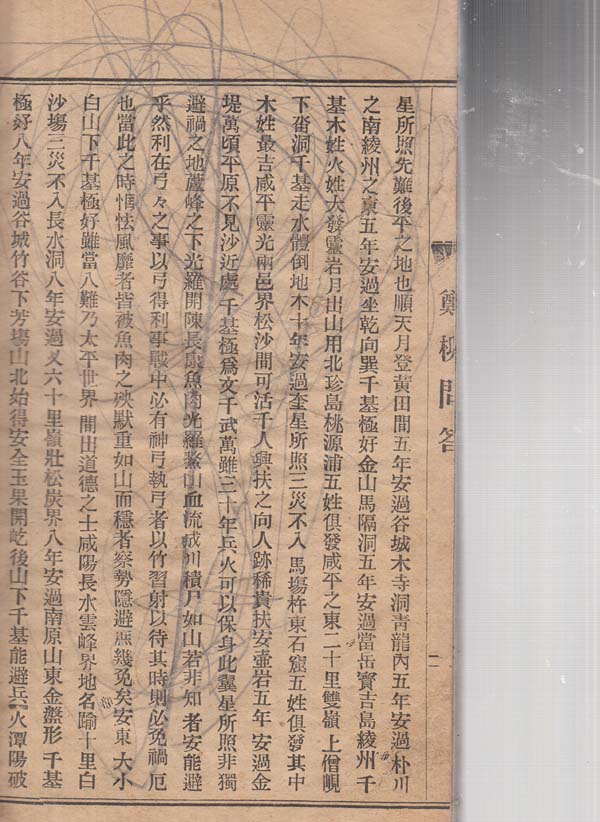 星所照先難後平之地也順天月登黃田間五年安過谷城木寺洞靑龍內五年安過朴川
之南綾州之東五年安過坐乾向巽千基極好金山馬隔洞五年安過當岳寶吉島綾州千
基木姓火姓大發靈岩月出山用北珍島桃源浦五姓俱發咸平之東二十里雙嶺上僧峴
下畓洞千基走水體倒地木十年安過奎星所照三災不入馬塲杵東石窟五姓俱發其中
木姓最吉咸平靈光兩邑界松沙間可活千人興扶之向人跡稀貴扶安壺岩五年安過金
堤萬頃平原不見沙近處千基極爲文千武萬雖三十年兵火可以保身此翼星所照非獨
避禍之地蘆峰之下光羅開陳長康魚肉光羅鰲山血流成川積尸如山若非知者安能避
乎然利在弓々之事以弓得利事戰中必有神弓執弓者以竹習射以待其時則必免禍厄
也當此之時恇怯風靡者皆被魚肉之殃默重如山而穩者察勢隱避庶幾免矣安東大小
白山下千基極好雖當八難乃太平世界間出道德之士咸陽長水雲峰界地名踰十里白
沙塲三災不入長水洞八年安過又六十里嶺壯松炭界八年安過南原山東金盤形千基
極好八年安過谷城竹谷下芳塲山北始得安全玉果開屹後山下千基能避兵火潭陽破
鄭柳問答